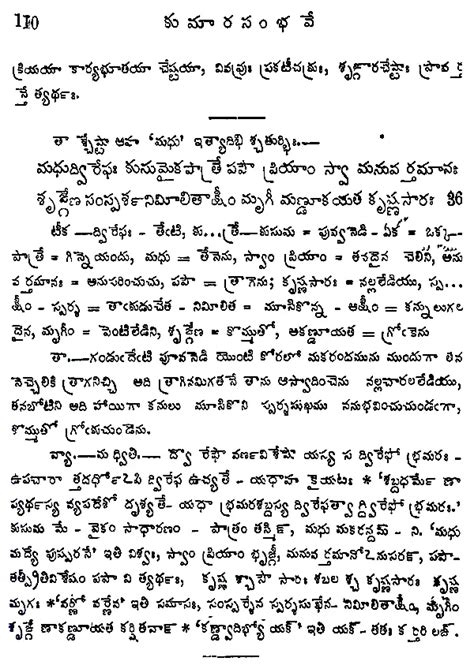 110 కుమారసంభవే
క్రియయా కార్యభూతయా చేష్టయా, వివవ్రుః ప్రకటీచక్రుః, శృఙ్గారచేష్టాః ప్రావర్త
న్తే త్యర్థః.
తా శ్చేష్టా ఆహ 'మధు' ఇత్యాదిభి శ్చతుర్భిః.—
మధుద్విరేఫః కుసుమైకపాత్రే పపౌ ప్రియాం స్వా మనువర్తమానః
శృఙ్గేణ సంస్పర్శనిమీలితాక్షీం మృగీ మకణ్డూయత కృష్ణసారః 36
టీక —ద్విరేఫః - తేఁటి, కు...త్రే—కుసుమ = పువ్వనెడి - ఏక = ఒక్క-
పాత్రే = గిన్నెయందు, మధు = తేనెను, స్వాం ప్రియాం = తనదైన చెలిని, అను
వర్తమానః = అనుసరించుచు, పపౌ = త్రాగెను; కృష్ణసారః = నల్లలేడియు, స్ప...
క్షీం - స్పర్శ = తాఁకుడుచేత - నిమీలిత = మూసికొన్న - అక్షీం = కన్నులుగల
దైన, మృగీం = పెంటిలేడిని, శృఙ్గేణ = కొమ్ముతో, అకణ్డూయత = గ్రోఁకెను
తా.—గండుఁదేఁటి పూవనెడి యొంటి కోరలో మకరందమును ముందుగా తన
నెచ్చెలికి త్రాగనిచ్చి అది త్రాగినమిగతనే తాను ఆస్వాదించెను నల్లచారలలేడియు,
తనబోటిని అది హాయిగా కనులు మూసికొని స్పర్శసుఖము ననుభవించుచుండఁగా,
కొమ్ముతో గ్రోఁకుచుండెను.
వ్యా.—మధ్వితి.— ద్వౌ రేఫౌ వర్ణవిశేషౌ యస్య స ద్విరేఫో భ్రమరః-
ఉపచారా త్తదర్థోఽపి ద్విరేఫ ఉచ్యతే - యథాహ కైయటః * 'శబ్దధర్మే ణా
ప్యర్థస్య వ్యపదేశో దృశ్యతే- యథా భ్రమరశబ్దస్య ద్విరేఫత్వా ద్ద్విరేఫో భ్రమరః.'
కుసుమ మే - వైకం సాధారణం - పాత్రం తస్మిన్, మధు మకరన్దమ్ - ని. 'మధు
మద్యే పుష్పరసే' ఇతి విశ్వః, స్వాం ప్రియాం భృఙ్గీం, మనువర్తమానోఽనుసరన్, పపౌ-
తత్ప్రీతివిశేషం పపౌ వి త్యర్థః, కృష్ణ శ్చాసౌ సారః శబల శ్చ కృష్ణసారః కృష్ణ
మృగః *'వర్ణో వర్ణేన' ఇతి సమాసః, సంస్పర్శేన స్పర్శసుఖేన- నిమీలితాక్షీం, మృగీం
శృఙ్గే ణాకణ్డూయత కర్షితవాన్ *'కణ్డ్వాదిభ్యో యక్' ఇతి యక్- తతః కర్తరి లఙ్.